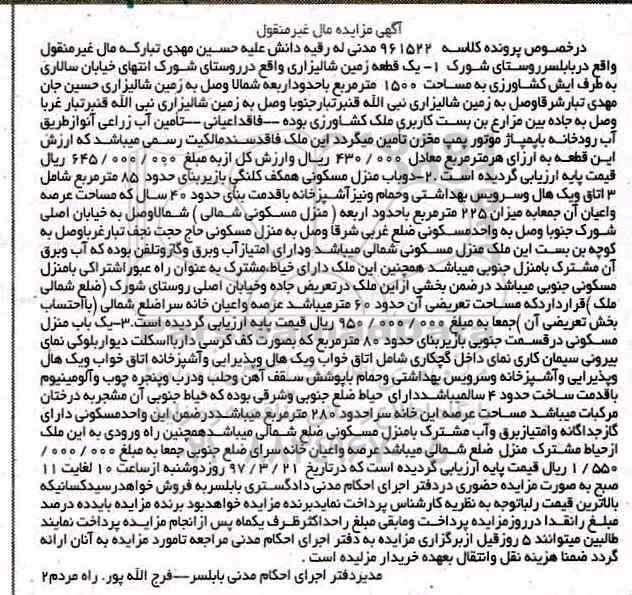 آگهی مزایده مال غیرمنقول
درخصوص پرونده کلاسه ۹۶۱۵۲۲ مدنی له رقیه دانش علیه حسین مهدی تبارکه مال غیرمنقول
واقع دربابلسرروستای شورک ۱- یک قطعه زمین شالیزاری واقع درروستای شورک انتهای خیابان سالاری
به طرف ایش کشاورزی به مساحت ۱۵۰۰ مترمربع باحدوداربعه شمالا وصل به زمین شالیزاری حسین جان
مهدی تبارشرقاوصل به زمین شالیزاری نبی الله قنبرتبارجنوبا وصل به زمین شالیزاری نبی الله قنبرتبار غربا
وصل به جاده بین مزارع بن بست کاربری ملک کشاورزی بوده --فاقداعیانی --تأمین آب زراعی آنوازطریق
آب رودخانه باپمپاژ موتور پمپ مخزن تأمین میگردد این ملک فاقدسندمالکیت رسمی میباشد که ارزش
این قطعه به ارزای هرمترمربع معادل ۴۳۰/۰۰۰ ریال وارزش کل ازبه مبلغ ۶۴۵/۰۰۰/۰۰۰ ریال
قیمت پایه ارزیابی گردیده است .۲-دوباب منزل مسکونی همکف کلنگی بازیربنای حدود ۸۵ مترمربع شامل
۳ اتاق ویک هال وسرویس بهداشتی وحمام ونیزآشپزخانه باقدمت بنای حدود ۴۰ سال که مساحت عرصه
واعیان آن جمعابه میزان ۲۲۵ مترمربع باحدود اربعه ( منزل مسکونی شمالی ) شمالاوصل به خیابان اصلی
شورک جنوبا وصل به واحدمسکونی ضلع غربی شرقا وصل به منزل مسکونی حاج حجت نجف تبارغرباوصل به
کوچه بن بست این ملک منزل مسکونی شمالی میباشد ودارای امتیازآب وبرق وگازوتلفن بوده که آب وبرق
آن مشترک بامنزل جنوبی میباشد همچنین این ملک دارای خیاط،مشترک به عنوان راه عبوراشتراکی بامنزل
مسکونی جنوبی میباشد درضمن بخشی ازاین ملک درتعریض جاده وخیابان اصلی روستای شورک (ضلع شمالی
ملک )قرارداردکه مساحت تعریضی آن حدود ۶۰ مترمیباشد عرصه واعیان خانه سراضلع شمالی (بااحتساب
بخش تعریضی آن )جمعا به مبلغ ۹۵۰/۰۰۰/۰۰۰ ریال قیمت پایه ارزیابی گردیده است.۳-یک باب منزل
مسکونی درقسمت جنوبی بازیربنای حدود ۸۰ مترمربع که بصورت کف کرسی داربااسکلت دیواربلوکی نمای
بیرونی سیمان کاری نمای داخل گچکاری شامل اتاق خواب ویک هال وپذیرایی وآشپزخانه اتاق خواب ویک هال
وپذیرایی وآشپزخانه وسرویس بهداشتی وحمام باپوشش سقف آهن وحلب ودرب وپنجره چوب وآلومینیوم
باقدمت ساخت حدود ۴ سالمیباشددارای حیاط ضلع جنوبی وشرقی بوده که حیاط جنوبی آن مشجربه درختان
مرکبات میباشد مساحت عرصه این خانه سراحدود ۲۸۰ مترمربع میباشددرضمن این واحدمسکونی دارای
گازجداگانه وامتیازبرق وآب مشترک بامنزل مسکونی ضلع شمالی میباشدهمچنین راه ورودی به این ملک
ازحیاط مشترک منزل ضلع شمالی میباشد عرصه واعیان خانه سرای ضلع جنوبی جمعا به مبلغ ۰۰۰/۰۰۰/
۱/۵۵۰ ریال قیمت پایه ارزیابی گردیده است که درتاریخ ۹۷/۳/۲۱ روزدوشنبه ازساعت ۱۰ لغایت ۱۱
صبح به صورت مزایده حضوری دردفتر اجرای احکام مدنی دادگستری بابلسربه فروش خواهدرسیدکسانیکه
بالاترین قیمت رلباتوجه به نظریه کارشناس پرداخت نمایدبرنده مزایده خواهدبود برنده مزایده بایدده درصد
مبلغ رانقدا درروزمزایده پرداخت ومابقی مبلغ راحداکثرظرف یکماه پس ازانجام مزایده پرداخت نمایند
طالبین میتوانند ۵ روزقبل ازبرگزاری مزایده به دفتر اجرای احکام مدنی مراجعه تامورد مزایده به آنان ارائه
گردد ضمنا هزینه نقل وانتقال بعهده خریدار مزلیده است .
مدیردفتر اجرای احکام مدنی بابلسر--فرج الله پور. راه مردم۲